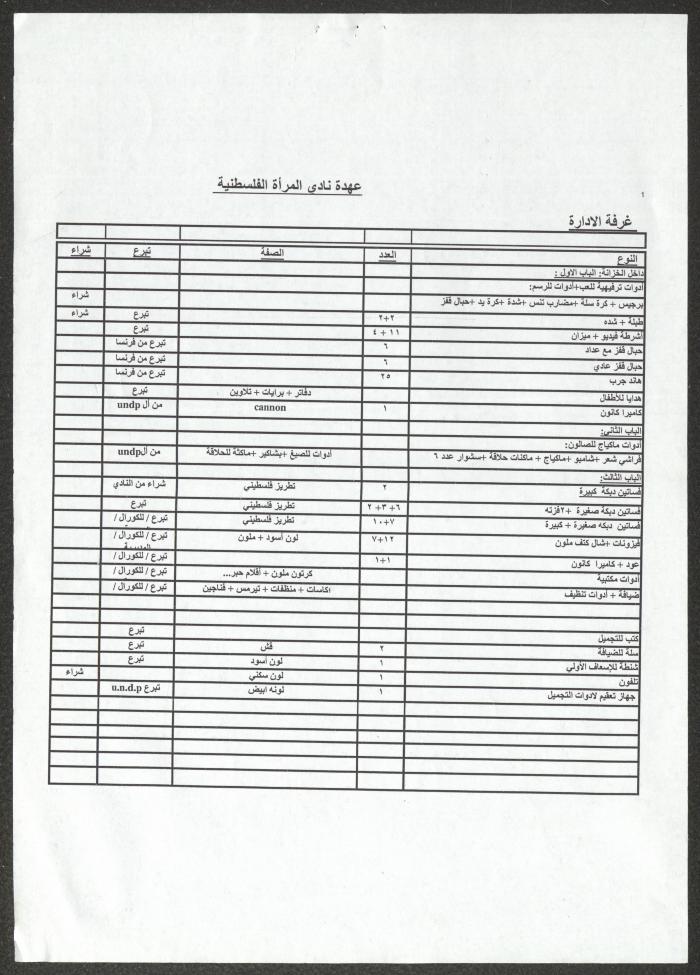 عهدة نادي المرأة الفلسطنية
١
غرفة الادارة
النوع العدد الصفة تبرع شراء
داخل الخزانة: الباب الاول :
أدوات ترفيهية للعب+أدوات للرسم:
برجيس + كرة سلة +مضارب تنس +شدة +كرة يد +حبال قفز شراء
طبلة + شده ٢+٢ تبرع شراء
أشرطة فيديو + ميزان ١١ + ٤ تبرع
حبال قفز مع عداد ٦ تبرع من فرنسا
حبال قفز عادي ٦ تبرع من فرنسا
هاند جرب ٢٥ تبرع من فرنسا
هدايا للأطفال دفاتر + برايات + تلاوين تبرع
كاميرا كانون ١ cannon من أل undp
الباب الثاني:
أدوات ماكياج للصالون:
فراشي شعر +شامبو +ماكياج + ماكنات حلاقة +سشوار عدد ٦ أدوات للصبغ +بشاكير +ماكثة للحلاقة من آلundp
الباب الثالث:
فساتين دبكة كبيرة ٢ تطريز فلسطيني شراء من النادي
فساتين دبكة صغيرة +٢فزته ٦+ ٣+ ٢ تطريز فلسطيني تبرع
فساتين دبكه صغيرة + كبيرة ٧+١٠ تطريز فلسطيني تبرع / للكورال /
فيزونات +شال كتف ملون ١٢+٧ لون أسود + ملون تبرع / للكورال /
عود + كاميرا كانون ١+١ تبرع / للكورال /
أدوات مكتبية كرتون ملون + أقلام حبر... تبرع / للكورال /
ضيافة + أدوات تنظيف اكاسات + منظفات + تيرمس + فناجين تبرع / للكورال /
كتب للتجميل تبرع
سلة للضيافة ٢ قش تبرع
شنطة للإسعاف الأولي ١ لون أسود تبرع
تلفون ١ لون سكني شراء
جهاز تعقيم لادوات التجميل ١ لونه ابيض تبرع u.n.d.p